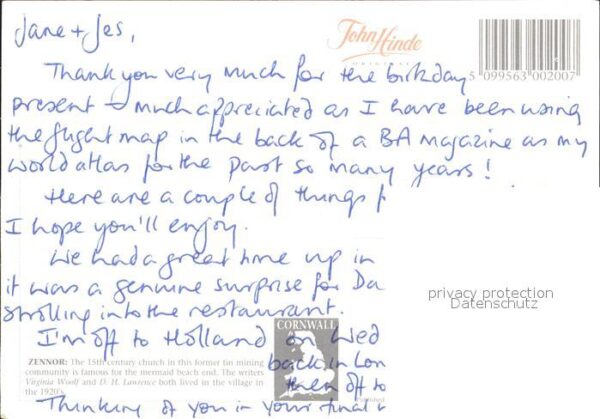 Jane + Jes,
John Hinde
ORIGINAL
5 099563 002007
Thank you very much for the birthday
present - much appreciated as I have been using
the flight map in the back of a BA magazine as my
world atlas for the past so many years!
Here are a couple of things
I hope you'll enjoy.
We had a great time up in
it was a genuine surprise for Da
strolling into the restaurant.
privacy protection
Datenschutz
I'm off to Holland on Wed
back in Lon
then off to
Thinking of you in your final
CORNWALL
ZENNOR: The 15th century church in this former tin mining
community is famous for the mermaid beach end. The writers
Virginia Woolf and D. H. Lawrence both lived in the village in
the 1920's.
Published